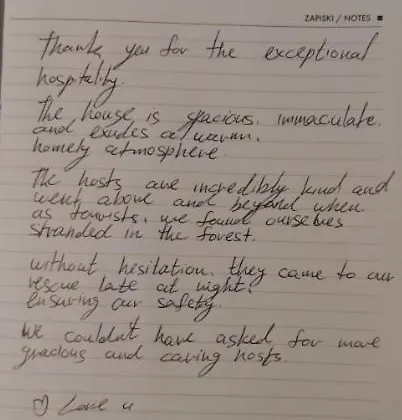 ZAPISKI / NOTES
Thank you for the exceptional
hospitality.
The house is spacious, immaculate,
and exudes a warm,
homely atmosphere.
The hosts are incredibly kind and
went above and beyond when
as tourists, we found ourselves
stranded in the forest.
without hesitation, they came to our
rescue late at night,
ensuring our safety.
We couldn't have asked for more
gracious and caring hosts.
♡ Love u